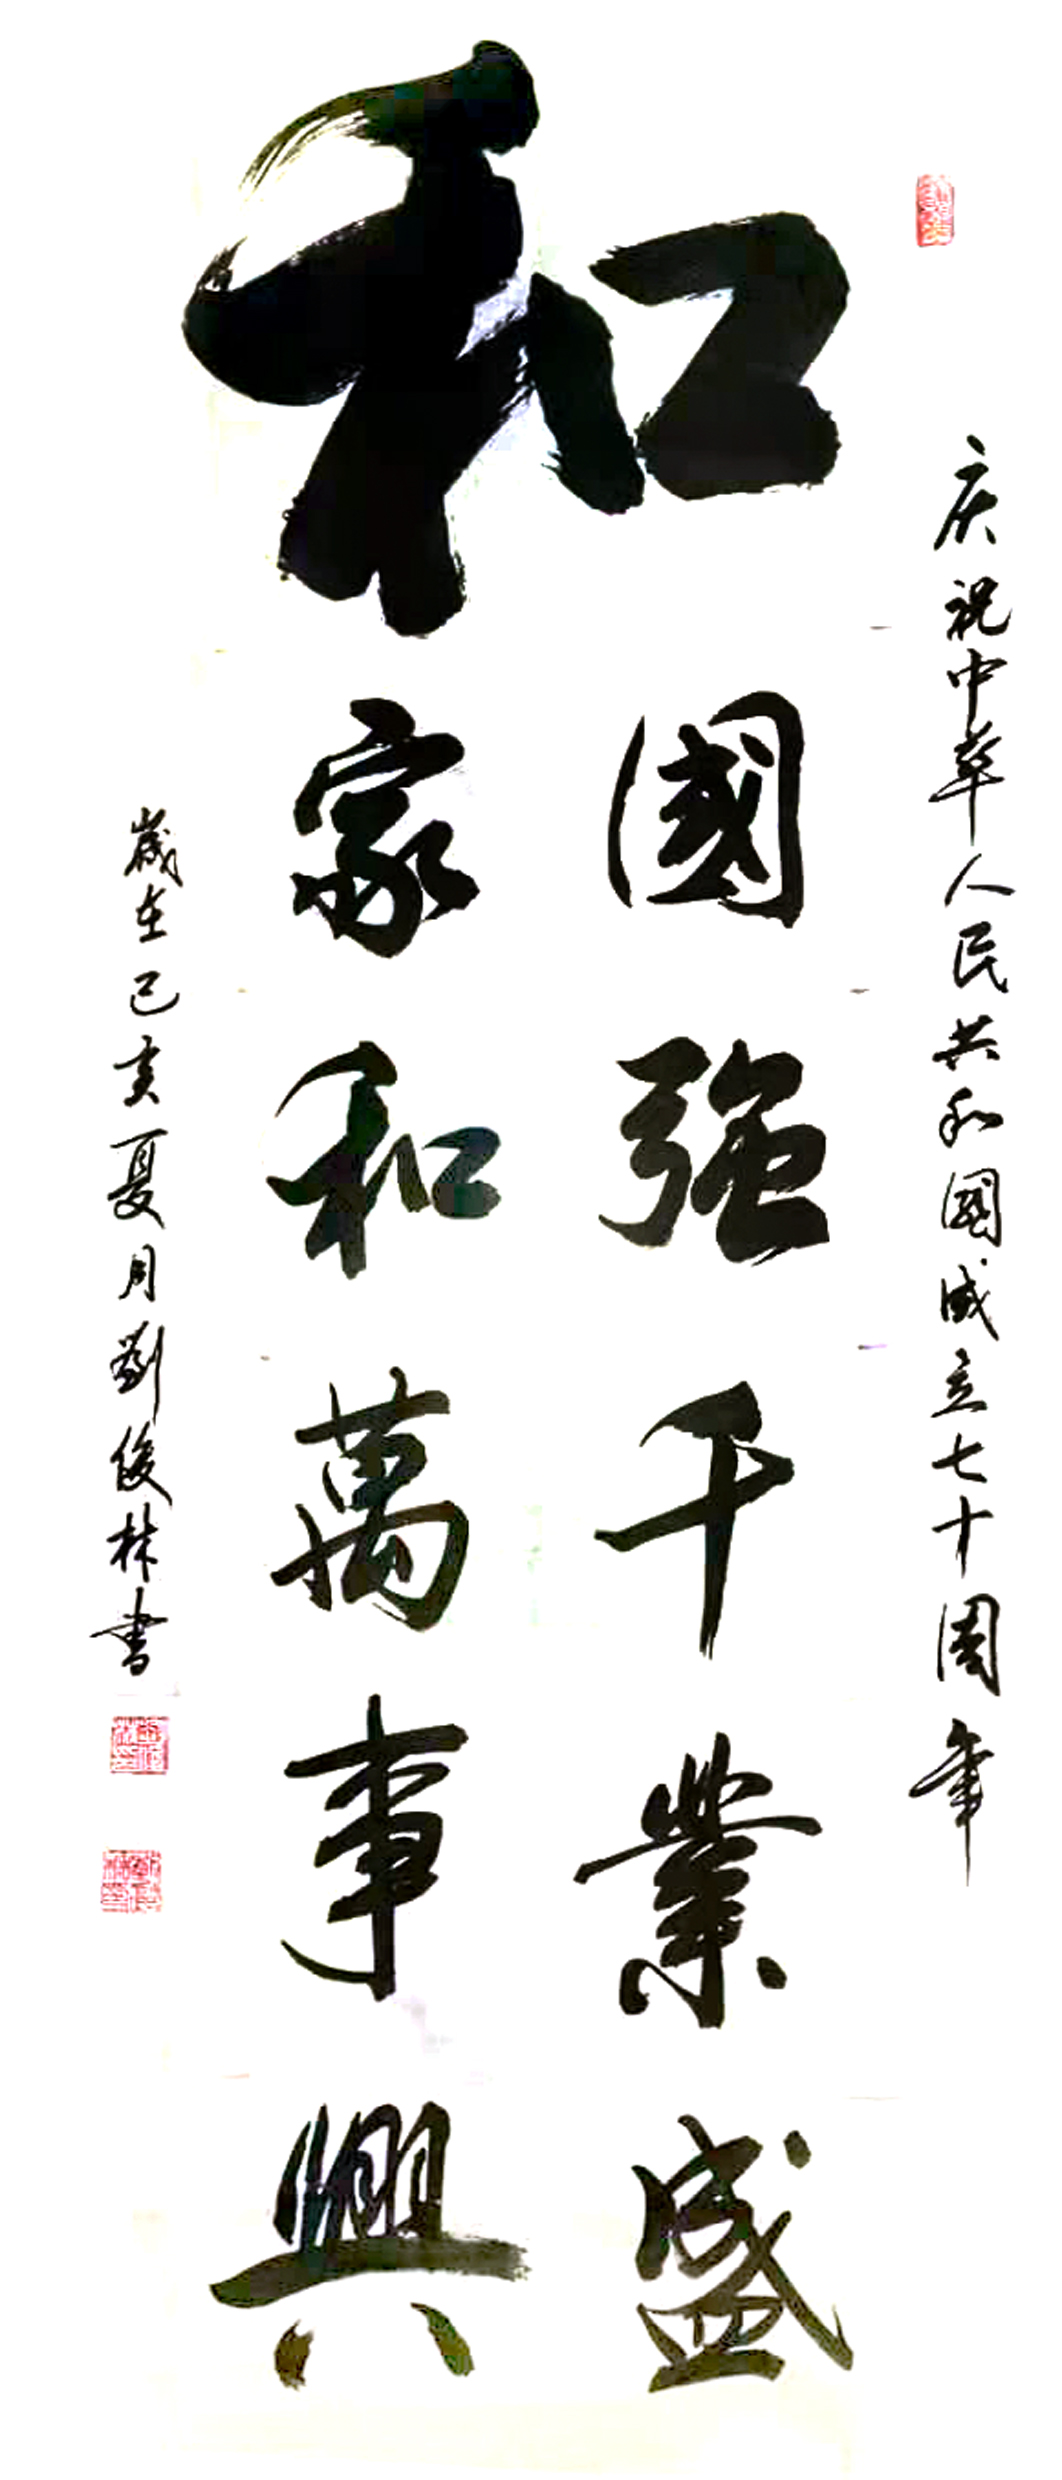 庆祝中华人民共和國成立七十周年
和
國強千業盛
家和萬事興
歲在己亥夏月劉俊林書